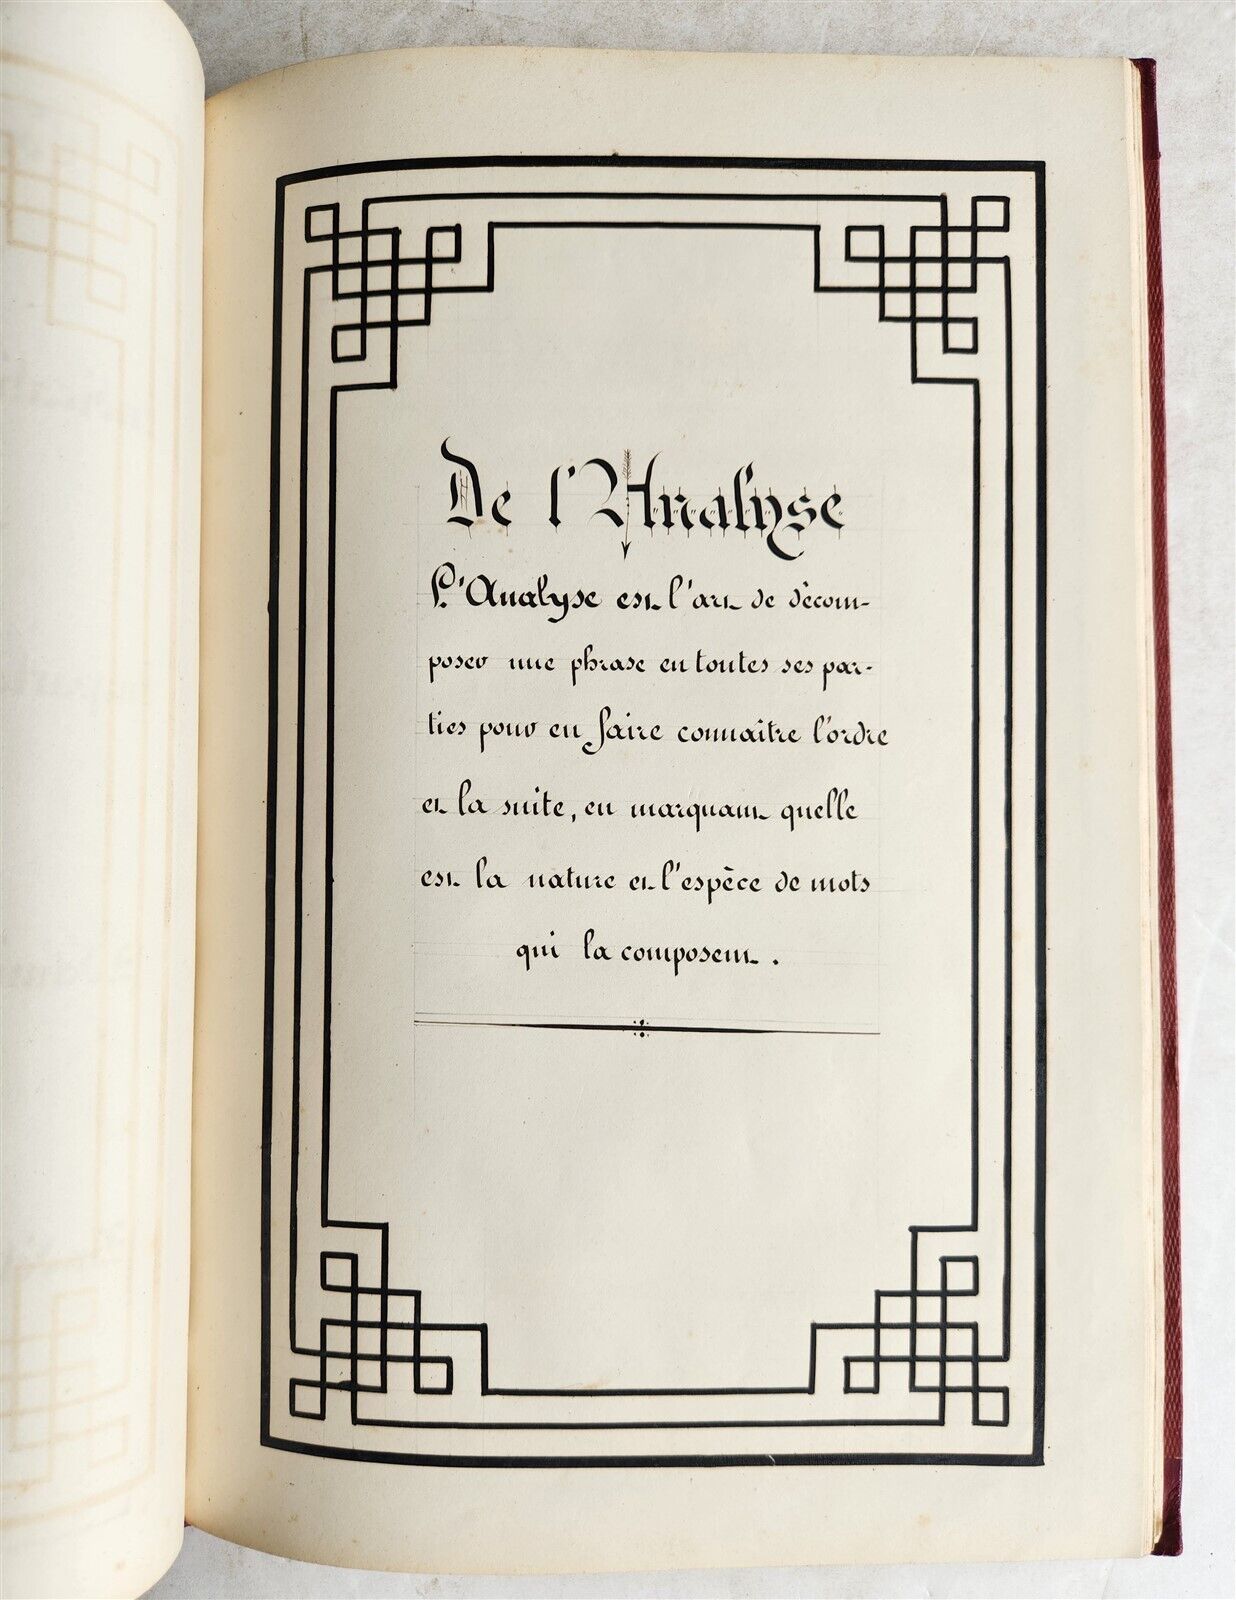 De l'Analyse
L'Analyse est l'art de décom-
poser une phrase en toutes ses par-
ties pour en faire connaître l'ordre
et la suite, en marquant quelle
est la nature et l'espèce de mots
qui la composent.